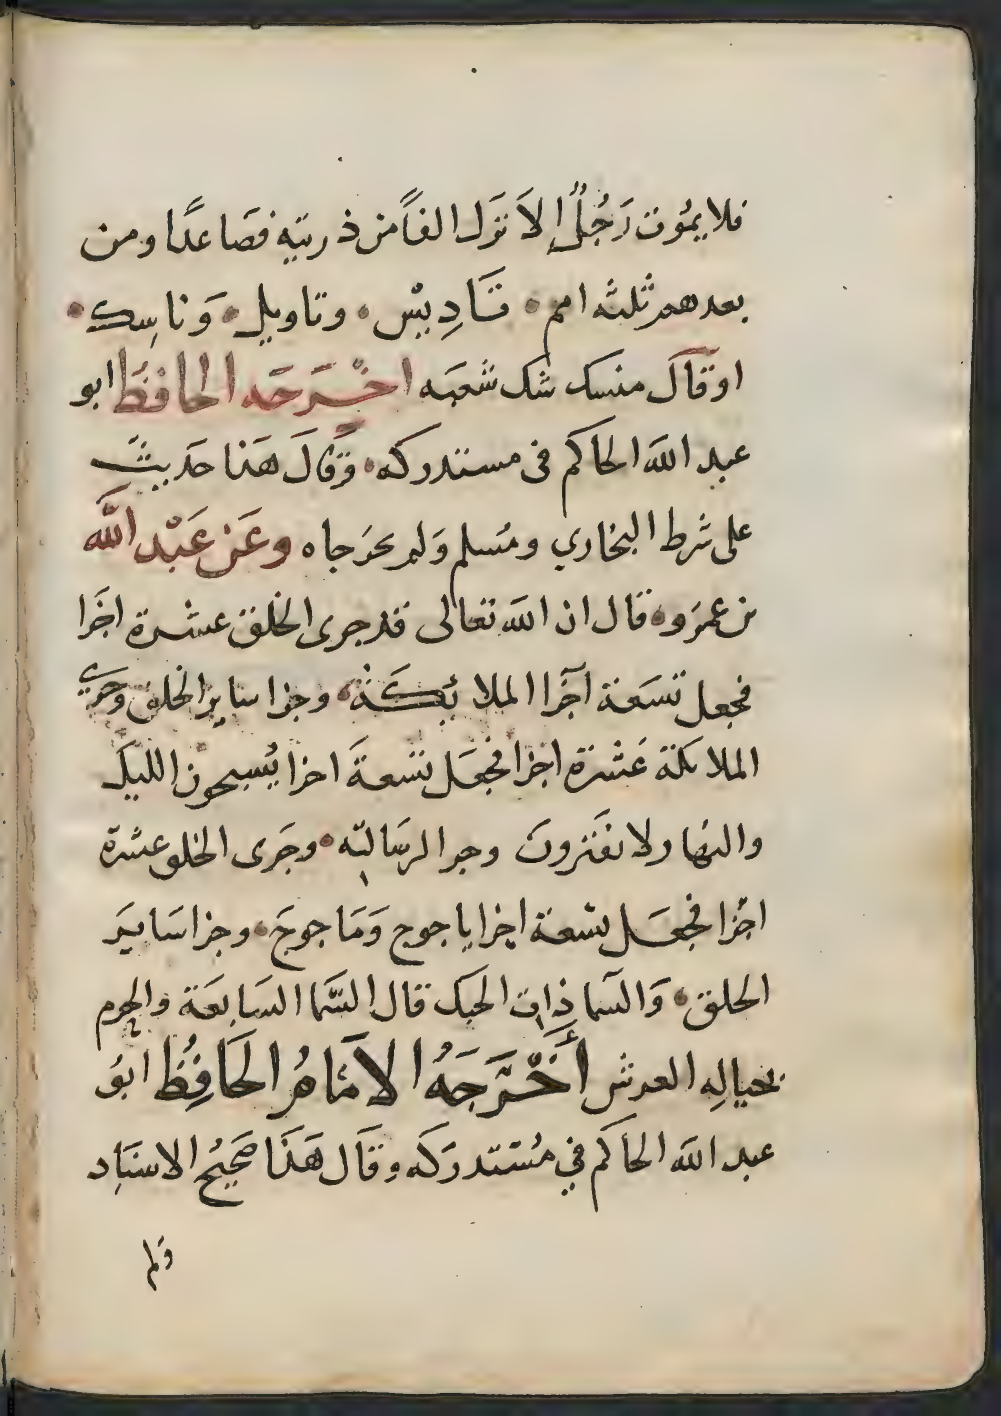 فلا يمُوت رَجُلٌ إلاَ تَرَك الفاً من ذريته فصَاعدًا ومن
بعدهم ثلثه امم • تَادِيْس • وتاويل • وَناسِك •
اوقَال منسك شك شعبَه اخْرَجَه الحافظُ ابو
عبد الله الحاكم فى مستدركه • وَقَالَ هَذا حَديث
على شرط البخاري ومُسلم وَلم يخرَجاه وعَن عَبْد الله
بن عمرَو • قال ان الله تعَالى قد جرى الخلق عشرة اجَزا
فجعل تسَعة اجَزا الملائكة • وجزا ساير الخلق وجَزي
الملائكة عَشرة اجزا فجعَل تسعةَ اجزا يُسبحون الليل
والنهار ولا يفَترونَ وجزا لرسَالته • وجَزى الخلق عشرة
اجْزا فجعَل تسْعة اجزا ياجوج وَمَاجوجَ • وجزا سَايرَ
الخلق • وَالسَما ذات الحبك قال السَّما السَابعَة والحرم
بحيالِه العرش أَخْرَجَهُ الامَامُ الحَافِظُ ابوُ
عبد الله الحاكم في مُسْتدرَكه وقَال هَذَا صَحِيُح الاسنَاد
وَلم